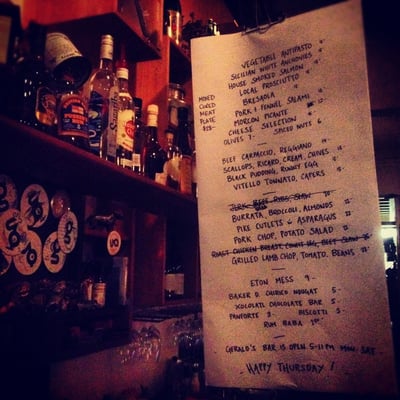 VEGETABLE ANTIPASTO
SICILIAN WHITE ANCHOVIES
HOUSE SMOKED SALMON
LOCAL PROSCIUTTO
BRESAOLA
PORK & FENNEL SALAMI
MORCON PICANTE
CHEESE SELECTION
OLIVES 7- SPICED NUTS 6
MIXED
CURED
MEAT
PLATE
BEEF CARPACCIO, REGGIANO
SCALLOPS, RICARD, CREAM, CHIVES
BLACK PUDDING, RUNNY EGG
VITELLO TONNATO, CAPERS
JERK BEEF RIBS, SLAW
BURRATA, BROCCOLI, ALMONDS
PIKE CUTLETS & ASPARAGUS
PORK CHOP, POTATO SALAD
ROAST CHICKEN BREAST, SLAW
GRILLED LAMB CHOP, TOMATO, BEANS
ETON MESS 9-
BAKER D. CHIRICO NOUGAT 5-
XOLOLATL CHOCOLATE BAR 5-
PANFORTE BISCOTTI
RUM BABA
GERALD'S BAR IS OPEN 5-11PM MON-SAT
-HAPPY THURSDAY!